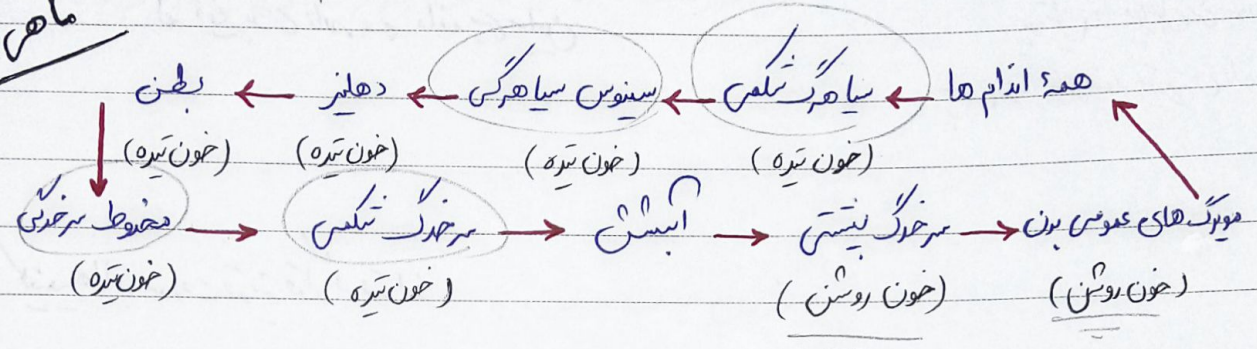 ماهی
همهٔ اندام ها ← سیاهرگ شکمی ← سینوس سیاهرگی ← دهلیز ← بطن
(خون تیره) (خون تیره) (خون تیره) (خون تیره)
مخروط سرخرگی → سرخرگ شکمی → آبشش → سرخرگ پشتی → مویرگ های عمومی بدن
(خون تیره) (خون تیره) (خون روشن) (خون روشن)